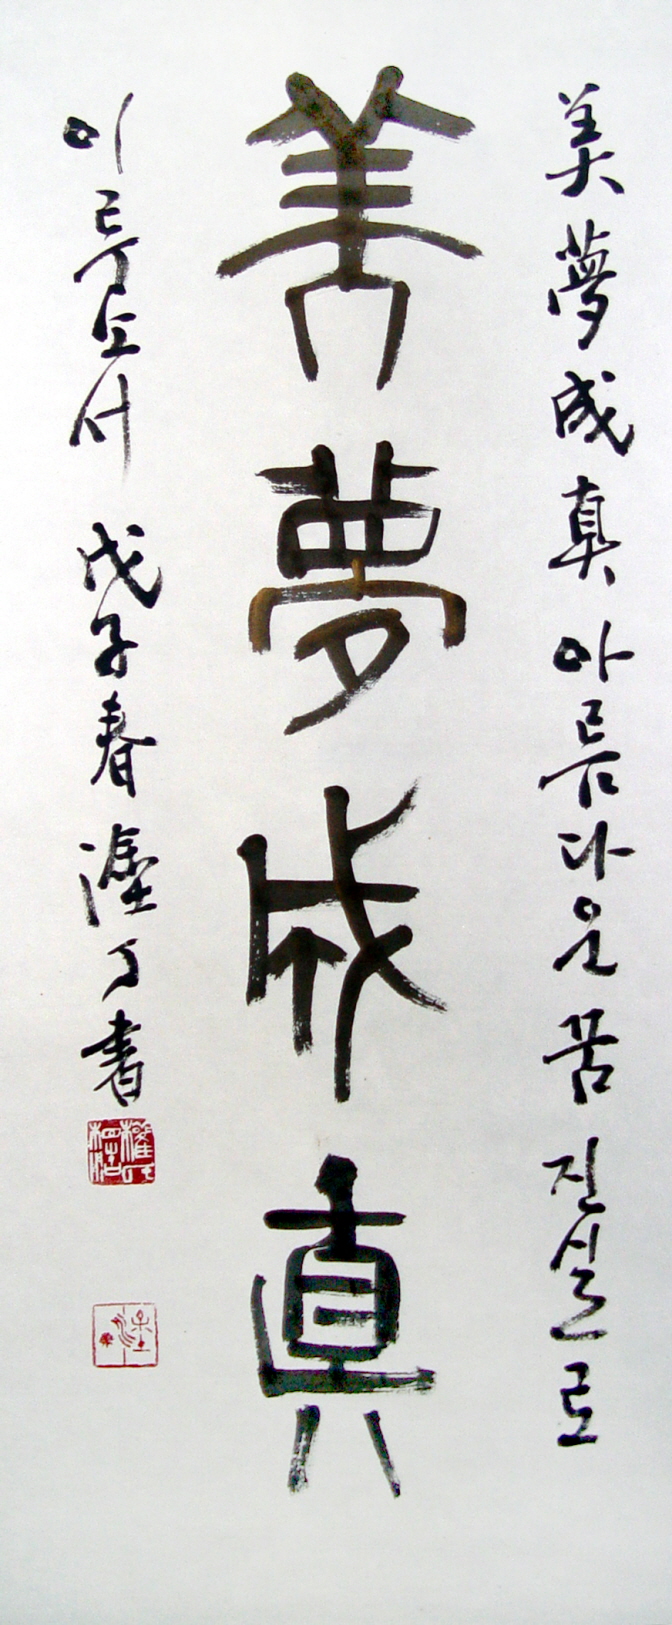 美夢成真 아름다운 꿈 진실로
美夢成真
이루소서 戊子春 書